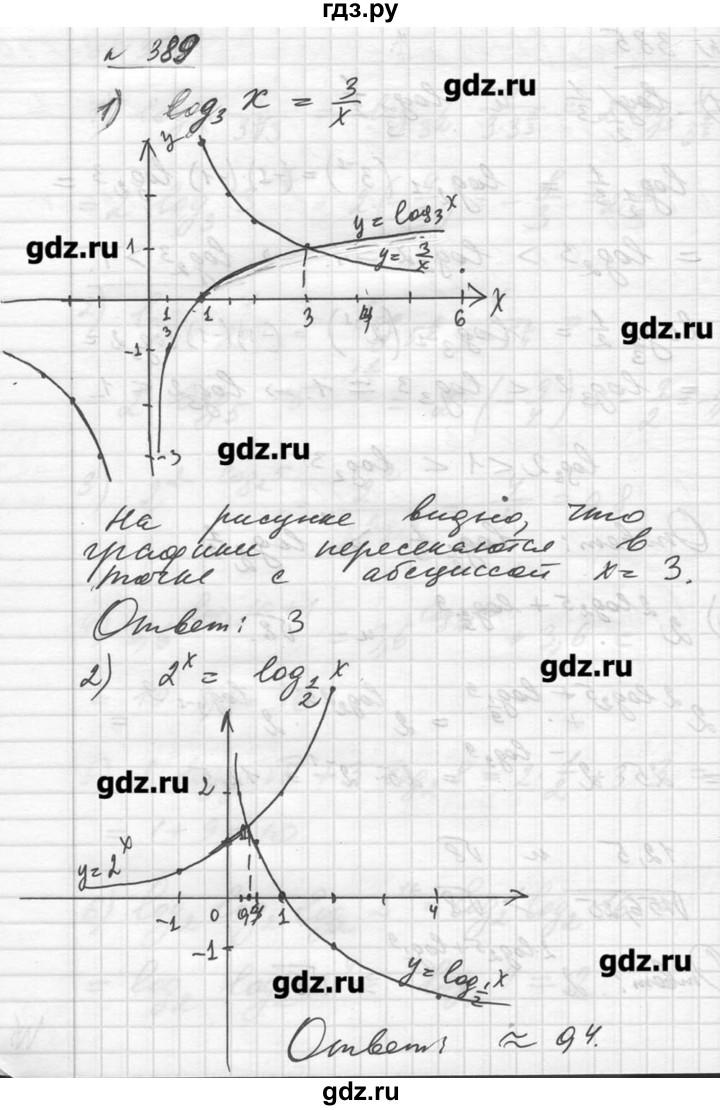 гдз.ру
n 389
gdz.ru
1) log₃ x = 3/x
y
y = log₃ x
gdz.ru
1
y = 3/x
1/3 1 3 4 6 x
gdz.ru
-1
gdz.ru
-3
На рисунке видно, что
графики пересекаются в
точке с абсциссой x = 3.
Ответ: 3
gdz.ru
2) 2ˣ = log_{1/2} x
gdz.ru
2
1
y = 2ˣ
-1 0 0,4 1 4
-1
gdz.ru
gdz.ru
y = log_{1/2} x
Ответ: ≈ 0,4.
gdz.ru